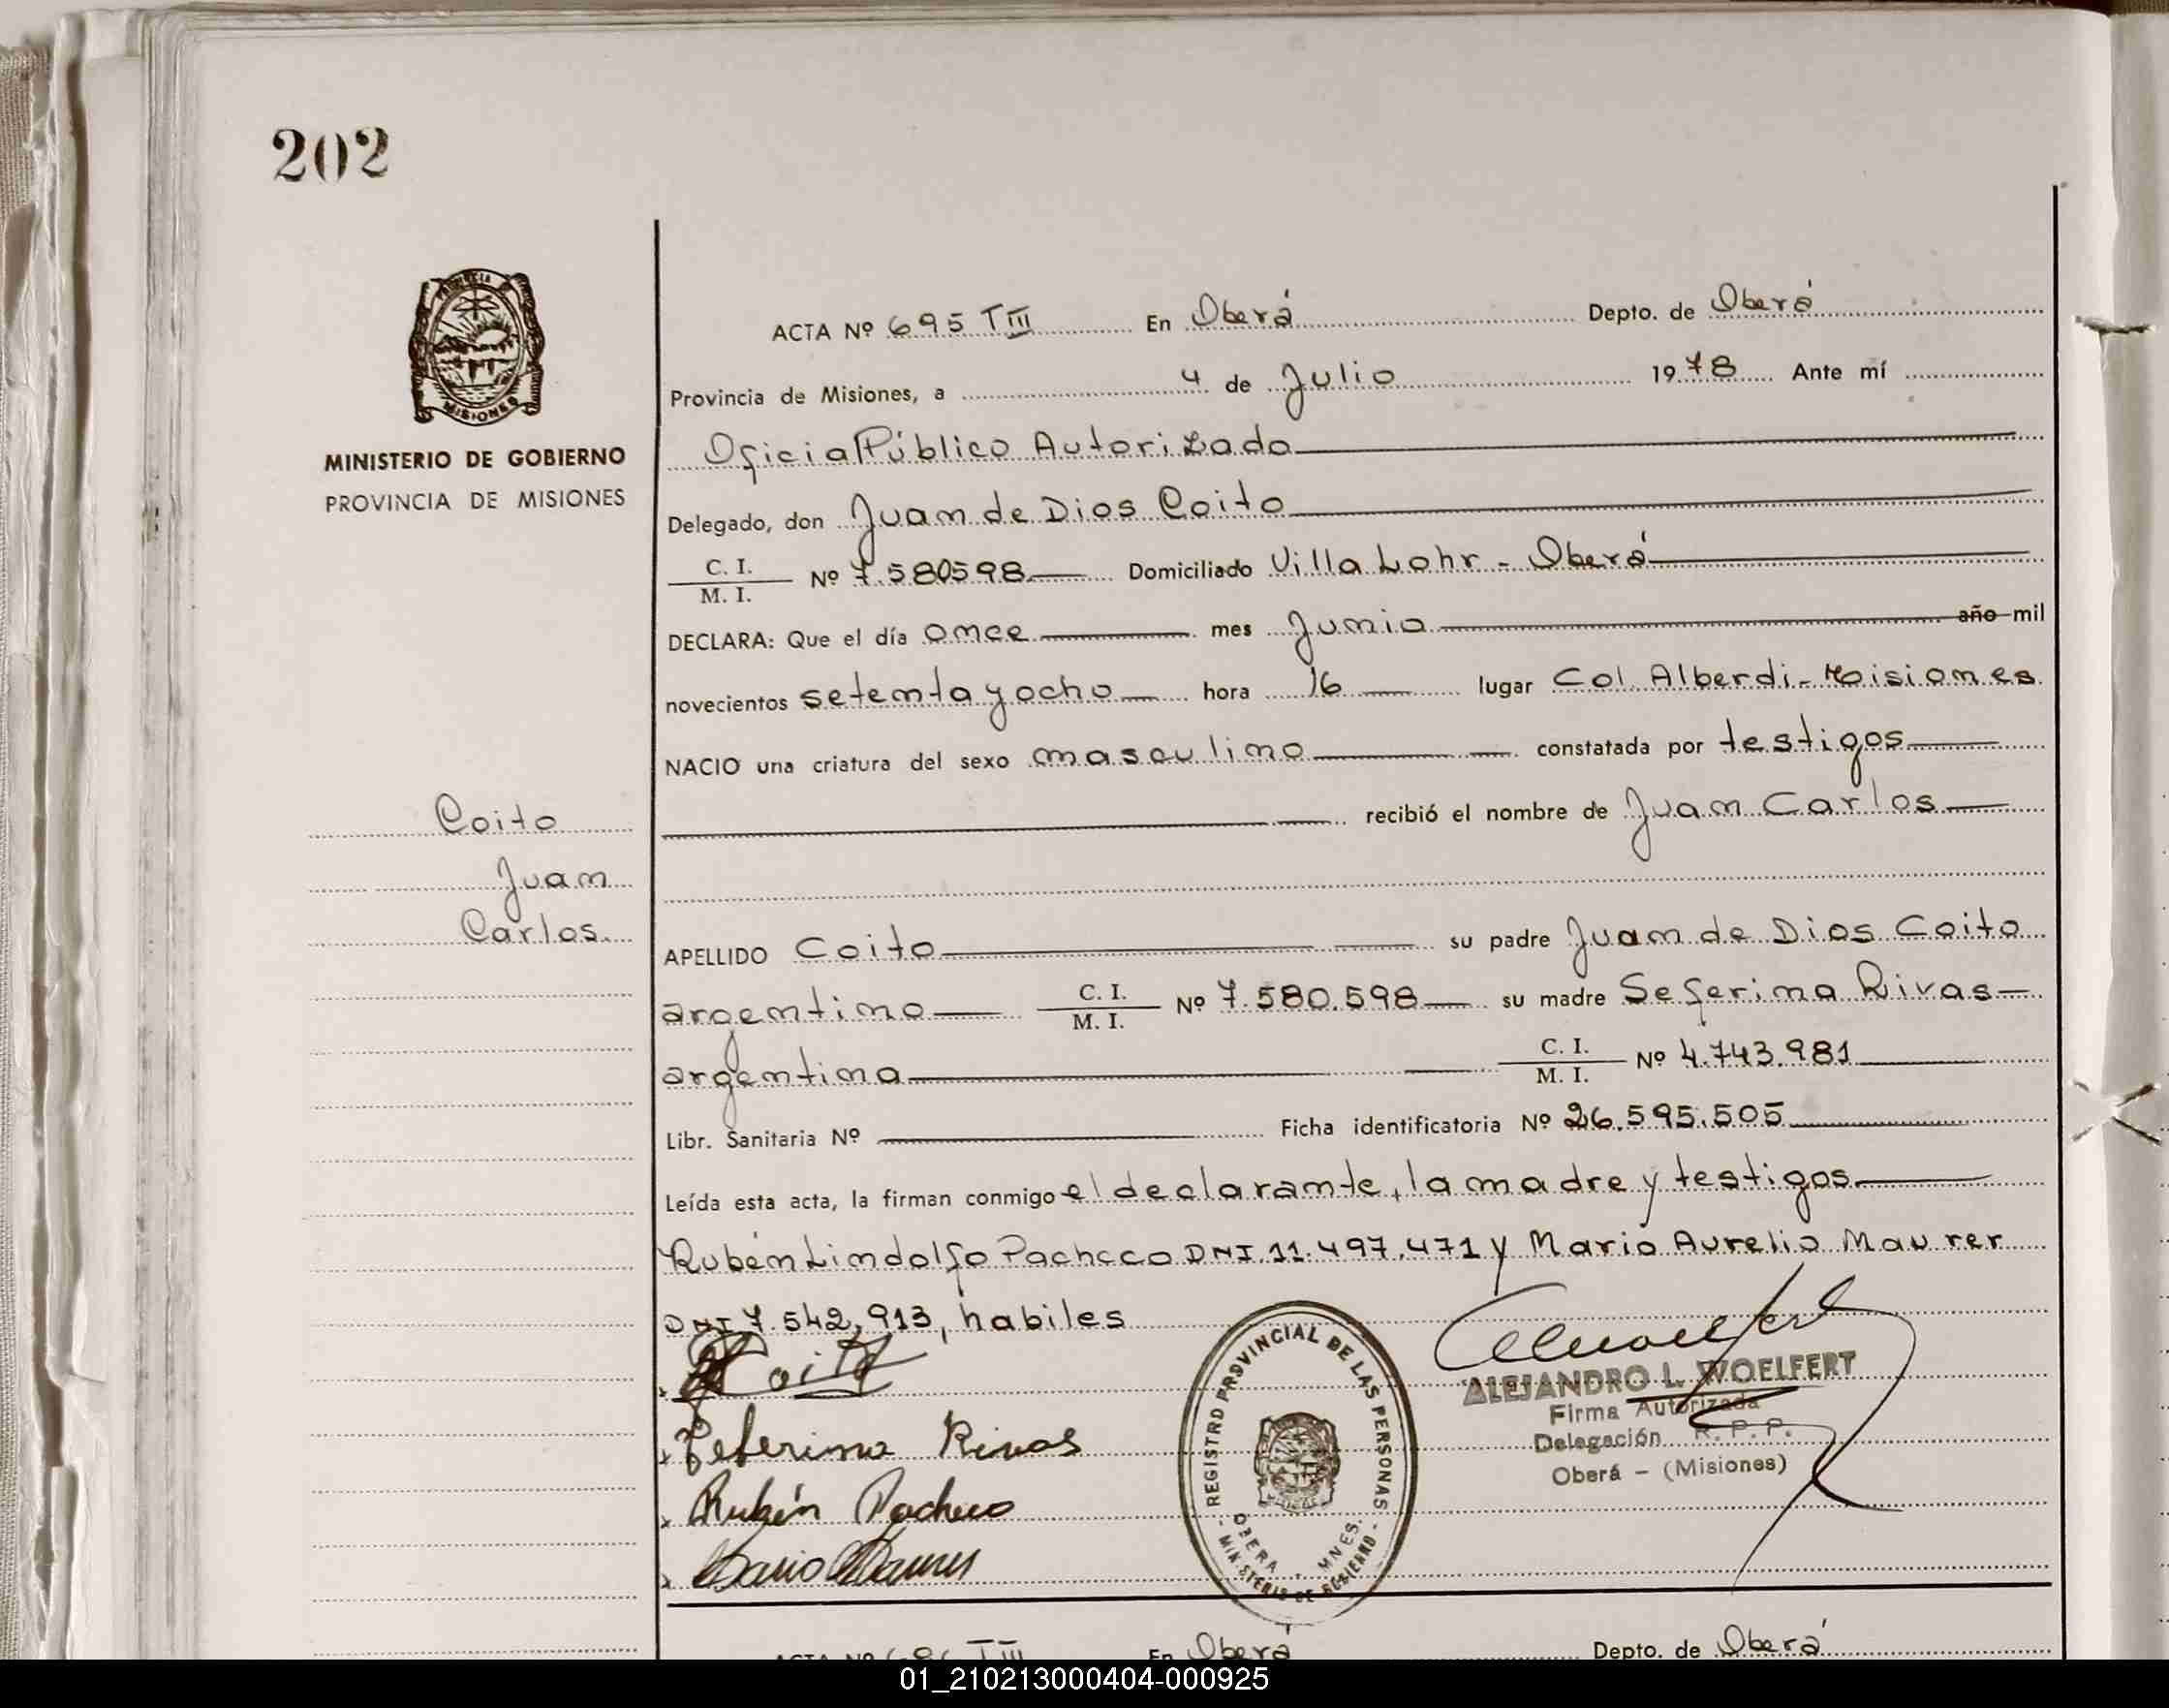 202
PROVINCIA DE
MISIONES
MINISTERIO DE GOBIERNO
PROVINCIA DE MISIONES
Coito
Juan
Carlos.
ACTA Nº 695 TIII En Oberá Depto. de Oberá
Provincia de Misiones, a 4 de Julio 1978 Ante mí
Oficial Público Autorizado
Delegado, don Juan de Dios Coito
C. I. / M. I. Nº 7.580598 Domiciliado Villa Lohr - Oberá
DECLARA: Que el día once mes Junio año mil
novecientos setenta y ocho hora 16 lugar Col. Alberdi - Misiones
NACIO una criatura del sexo masculino constatada por testigos
recibió el nombre de Juan Carlos
APELLIDO Coito su padre Juan de Dios Coito
argentino C. I. / M. I. Nº 7.580.598 su madre Seferina Rivas
argentina C. I. / M. I. Nº 4.743.981
Libr. Sanitaria Nº Ficha identificatoria Nº 26.595.505
Leída esta acta, la firman conmigo el declarante, la madre y testigos
Rubén Lindolfo Pacheco DNI 11.497.471 y Mario Aurelio Maurer
DNI 7.542,913, habiles
Coito
Seferina Rivas
Rubén Pacheco
Mario Maurer
REGISTRO PROVINCIAL DE LAS PERSONAS
OBERA - MNES.
- MINISTERIO DE GOBIERNO -
ALEJANDRO L. WOELFERT
Firma Autorizada
Delegación R. P. P.
Oberá - (Misiones)
ACTA Nº 696 TIII En Oberá Depto. de Oberá
01_210213000404-000925